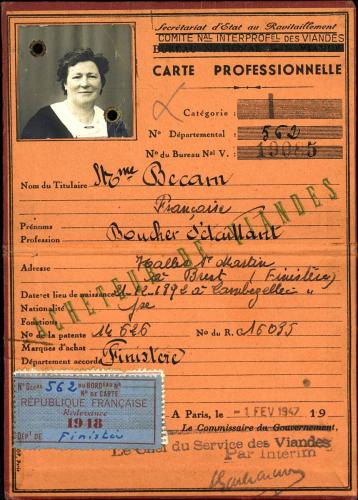 Secrétariat d'Etat au Ravitaillement
COMITE NAL INTERPROFEL DES VIANDES
CARTE PROFESSIONNELLE
Catégorie : I
N° Départemental : 562
N° du Bureau Nal V. : 19085
Nom du Titulaire Mme Becam
Française
Prénoms
Profession Boucher Détaillant
Adresse Halles St Martin
à Brest (Finistère)
Date et lieu de naissance 1892 à
Nationalité fse
Fonctions
N° de la patente 14626 N° du R. C. 16095
Marques d'achat
Département accordé Finistère
ACHETEUR DE VIANDES
N° D'ORD. 562 DU BORDEAU Nal
N° DE CARTE
RÉPUBLIQUE FRANÇAISE
Redevance
1948
DÉPt DE Finistère
A Paris, le -1 FEV 1947 19
Le Commissaire du Gouvernement,
Le Chef du Service des Viandes
Par Intérim